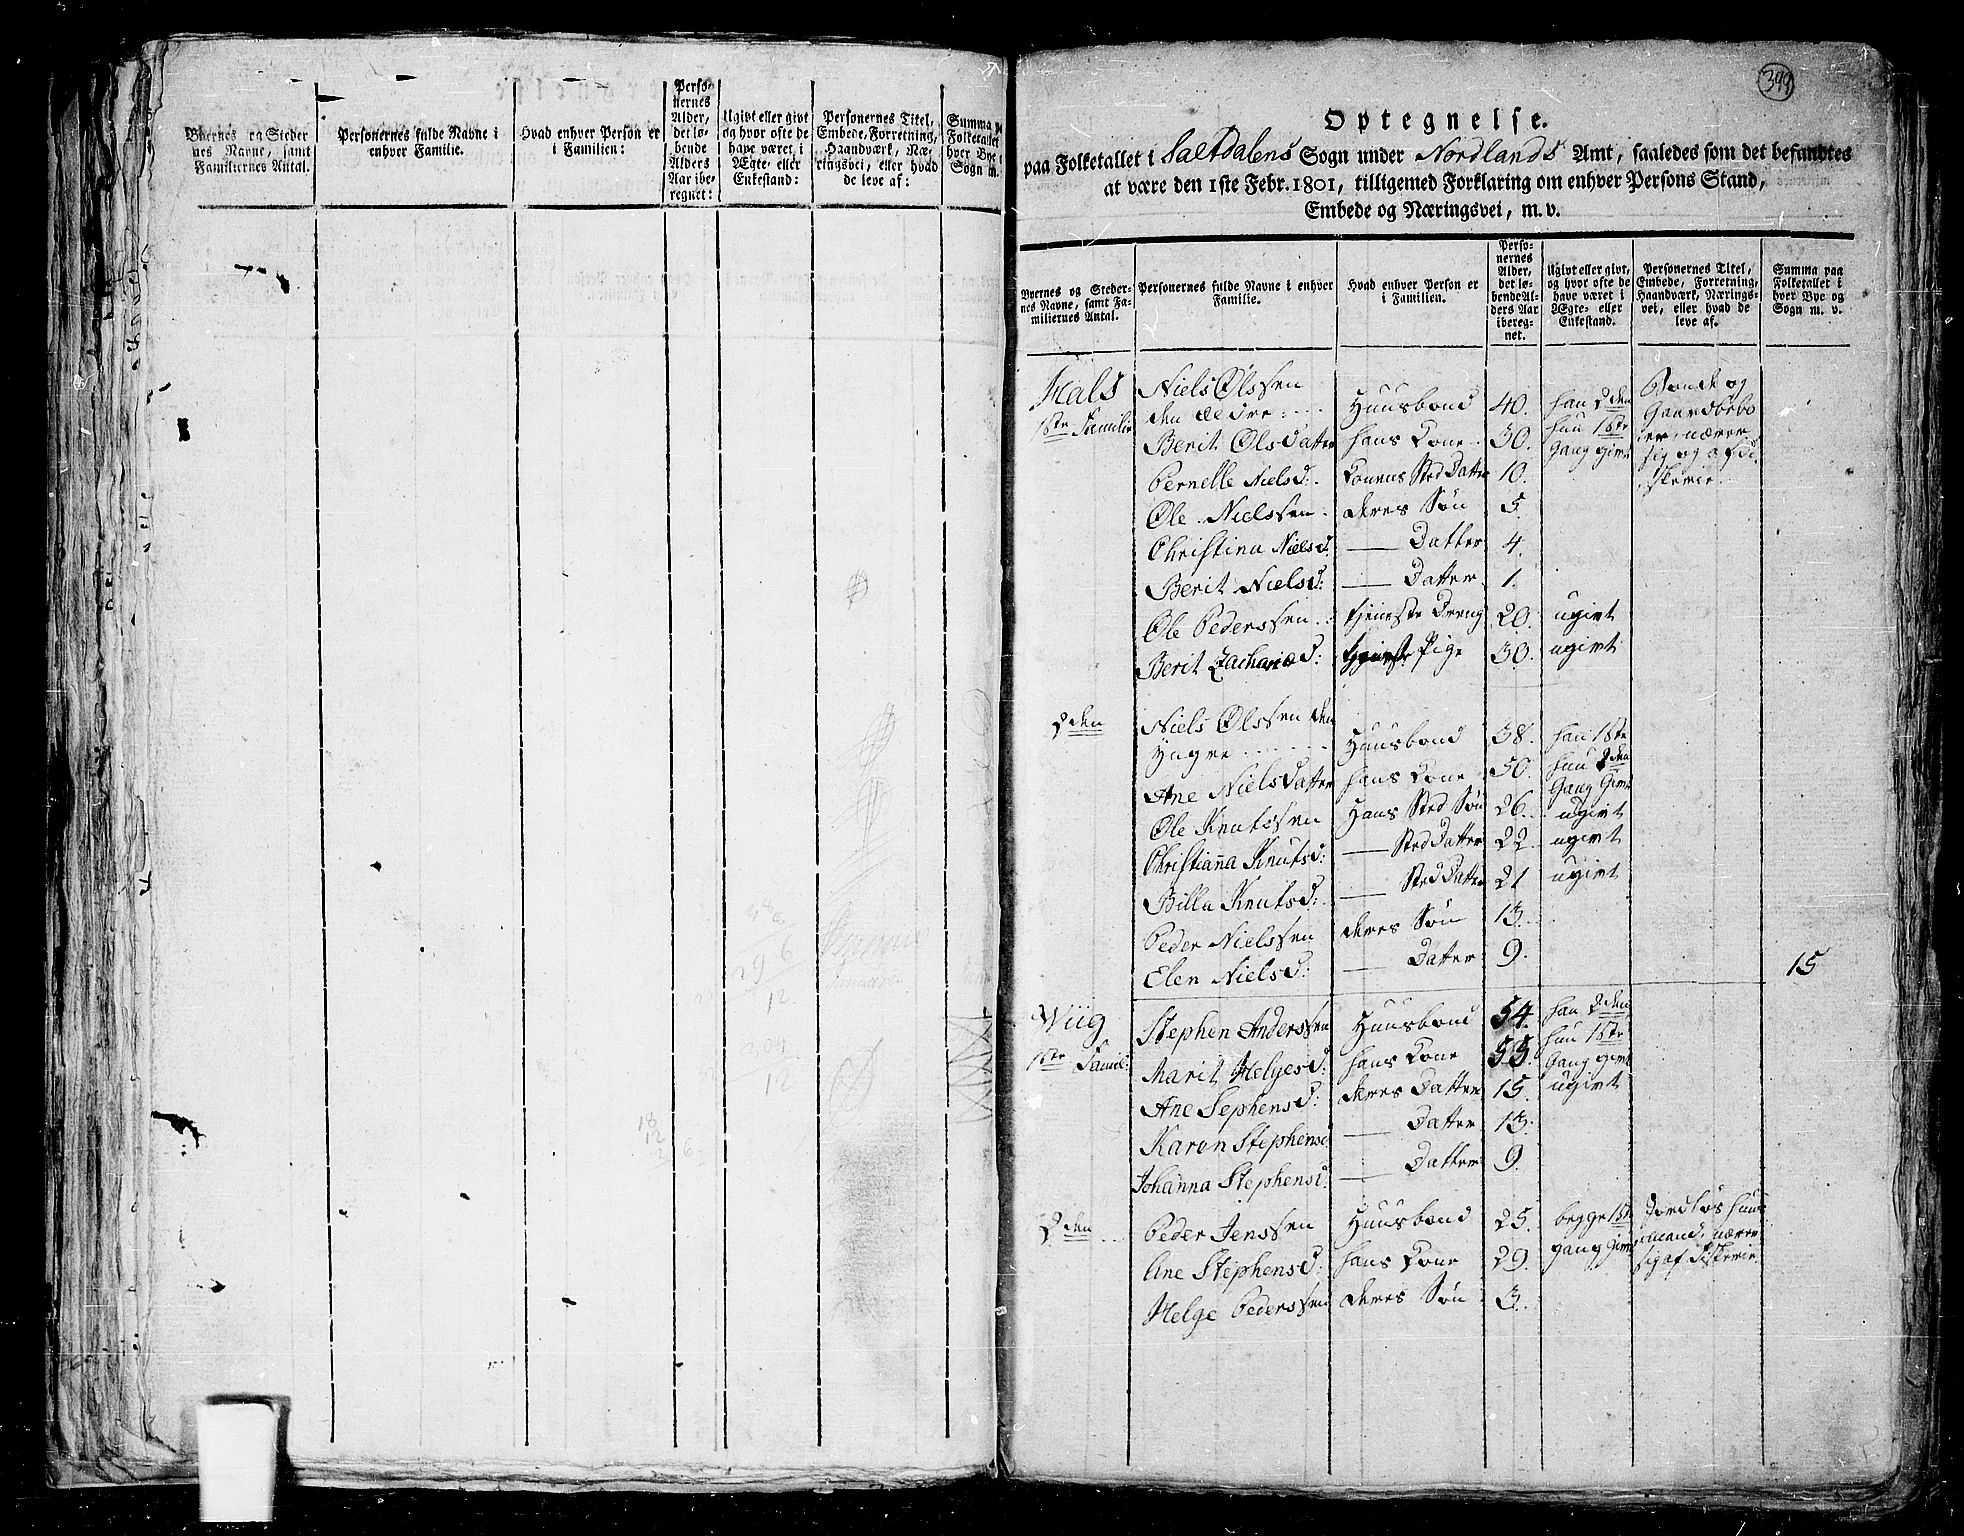 Byernes og Steder
nes Navne, samt
Familiernes Antal.
Personernes fulde Navne i
enhver Familie.
Hvad enhver Person er
i Familien:
Perso-
nernes
Alder,
det lø-
bende
Alders
Aar ibe-
regnet:
Ugivt eller givt
og hvor ofte de
have været i
Ægte- eller
Enkestand:
Personernes Titel,
Embede, Forretning,
Haandværk, Næ-
ringsvei, eller hvad
de leve af:
Summa p
Folketallet
hver Bye
Sogn m.
399
Optegnelse.
paa Folketallet i Saltdalens Sogn under Nordlands Amt, saaledes som det befandtes
at være den 1ste Febr. 1801, tilligemed Forklaring om enhver Persons Stand,
Embede og Næringsvei, m. v.
Byernes og Steder-
nes Navne, samt Fa-
miliernes Antal.
Personernes fulde Navne i enhver
Familie.
Hvad enhver Person er
i Familien.
Perso-
nernes
Alder,
det lø-
bende Al-
ders Aar
ibereg-
net.
Ugivt eller givt,
og hvor ofte de
have været i
Ægte- eller
Enkestand.
Personernes Titel,
Embede, Forretning,
Haandværk, Nærings-
vei, eller hvad de
leve af.
Summa paa
Folketallet i
hver Bye og
Sogn m. v.
Hals Niels Olssen Bonde og
1ste Familie den ældre Huusbond 40. han 2den Gaardbebo
Berit Olsdatter hans Kone 30. hun 1ste er, nærer
gang givt sig og af Fi
Pernelle Nielsd: Konens Sted Datter 10. skerie
Ole Nielssen deres Søn 5.
Christina Nielsd. — Datter 4.
Berit Nielsd: — Datter 1.
Ole Pederssen tjeneste Dreng 20. ugivt
Berit Zachariæd: tjeneste Pige 30. ugivt
2den Niels Olssen den
yngre Huusbond 38. han 1ste
Ane Nielsdatter hans Kone 50. hun 2den
Gang Givt
Ole Knutssen Hans Sted Søn 26. ugivt
Christianna Knutsd: — Sted Datter 22. ugivt
Billa Knutsd: — Sted Datter 21 ugivt
Peder Nielssen deres Søn 13.
Elen Nielsd: — Datter 9. 15
Wiig Stephen Anderssen Huusbond 54. han 2den
1ste Famil: Marit Helgesd: hans Kone 55. hun 1ste
Gang givt
Ane Sephensd: deres Datter 15. ugivt
Karen Stephensd — Datter 13.
Johanna Stephensd. — Datter 9.
2den Peder Jenssen Huusbond 25. begge 1ste Jordløs Huus
Ane Stephensd: hans Kone 29. gang givt mand, nærer
sig af Fiskerie
Helge Pederssen deres Søn 3.